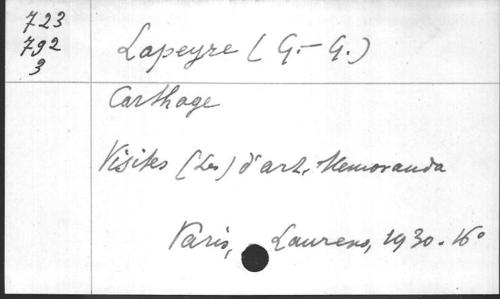 723
792
3
Lapeyre (G.-G.)
Carthage
Visites (Les) d'art, Memoranda
Paris, Laurens, 1930. 16°